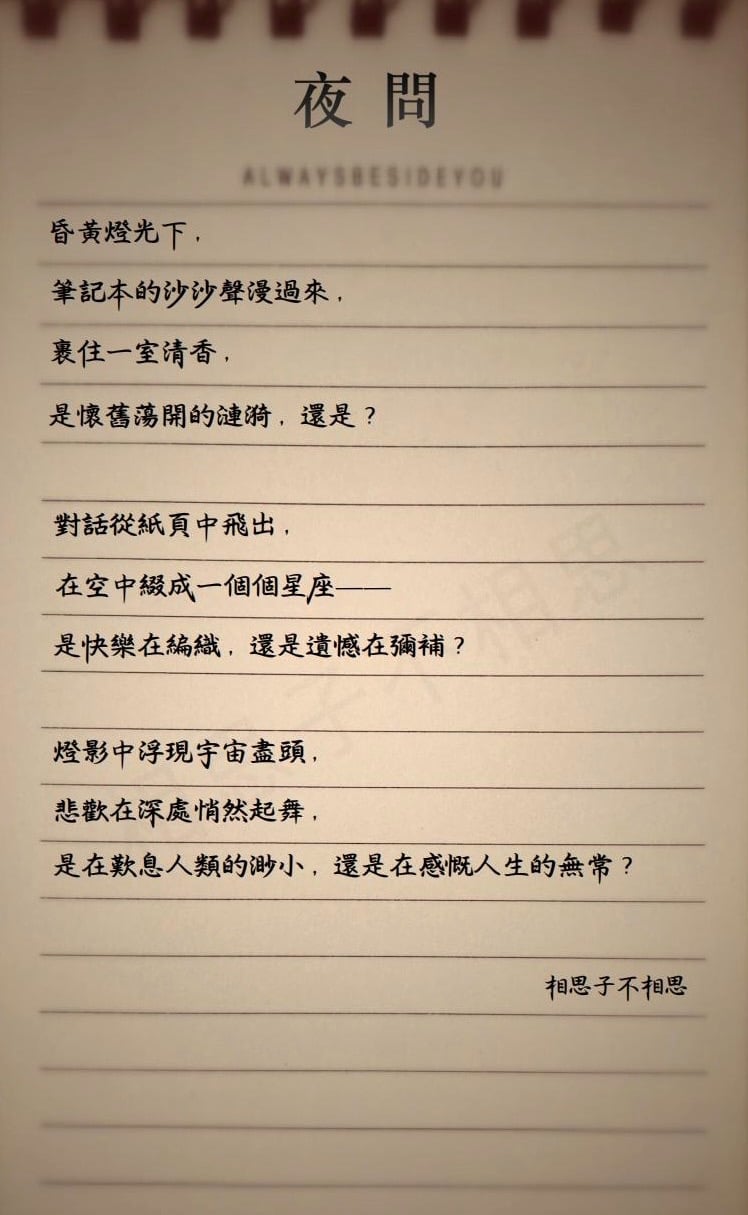 夜問
ALWAYSBESIDEYOU
昏黃燈光下，
筆記本的沙沙聲漫過來，
裹住一室清香，
是懷舊蕩開的漣漪，還是？
對話從紙頁中飛出，
在空中綴成一個個星座——
是快樂在編織，還是遺憾在彌補？
燈影中浮現宇宙盡頭，
悲歡在深處悄然起舞，
是在歎息人類的渺小，還是在感慨人生的無常？
相思子不相思